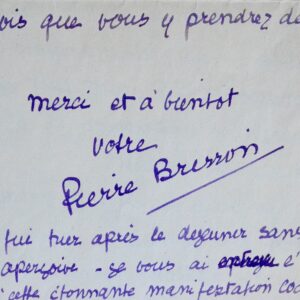 ois que vous y prendrez de
merci et à bientot
votre
Pierre Bresson
fui tuer après le dejeuner sans
aperçoive - je vous ai
cette étonnante manifestation co